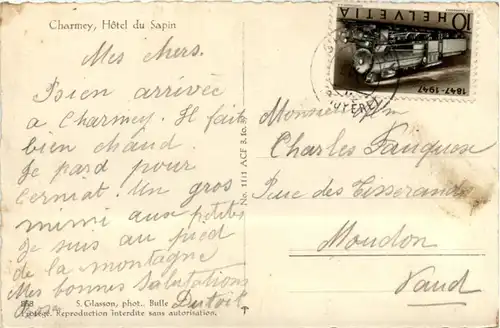 Charmey, Hôtel du Sapin
HELVETIA 10
1847-1947
Mes chers.
Bien arrivée
a Charmey. Il fait
bien chaud.
Je pard pour
Cerniat. Un gros
mimi aux petites
Je suis au pied
de la montagne
Mes bonnes Salutations
Dutoit
Monsieur
Charles Fauquex
Rue des Tisserands
Moudon
Vaud
No. 1111 ACF B.
S. Glasson, phot., Bulle
Reproduction interdite sans autorisation.